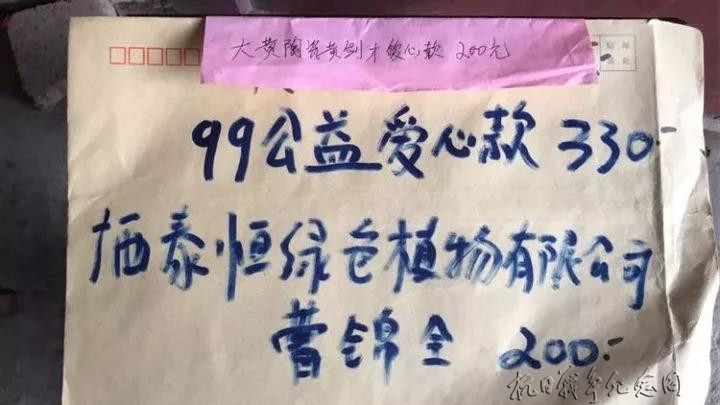 大黄陶瓷黄剑才爱心款 200元
贴 邮
票 处
99公益爱心款 330.-
栖泰恒绿色植物有限公司
曹锦全 200.-
抗日战争纪念网